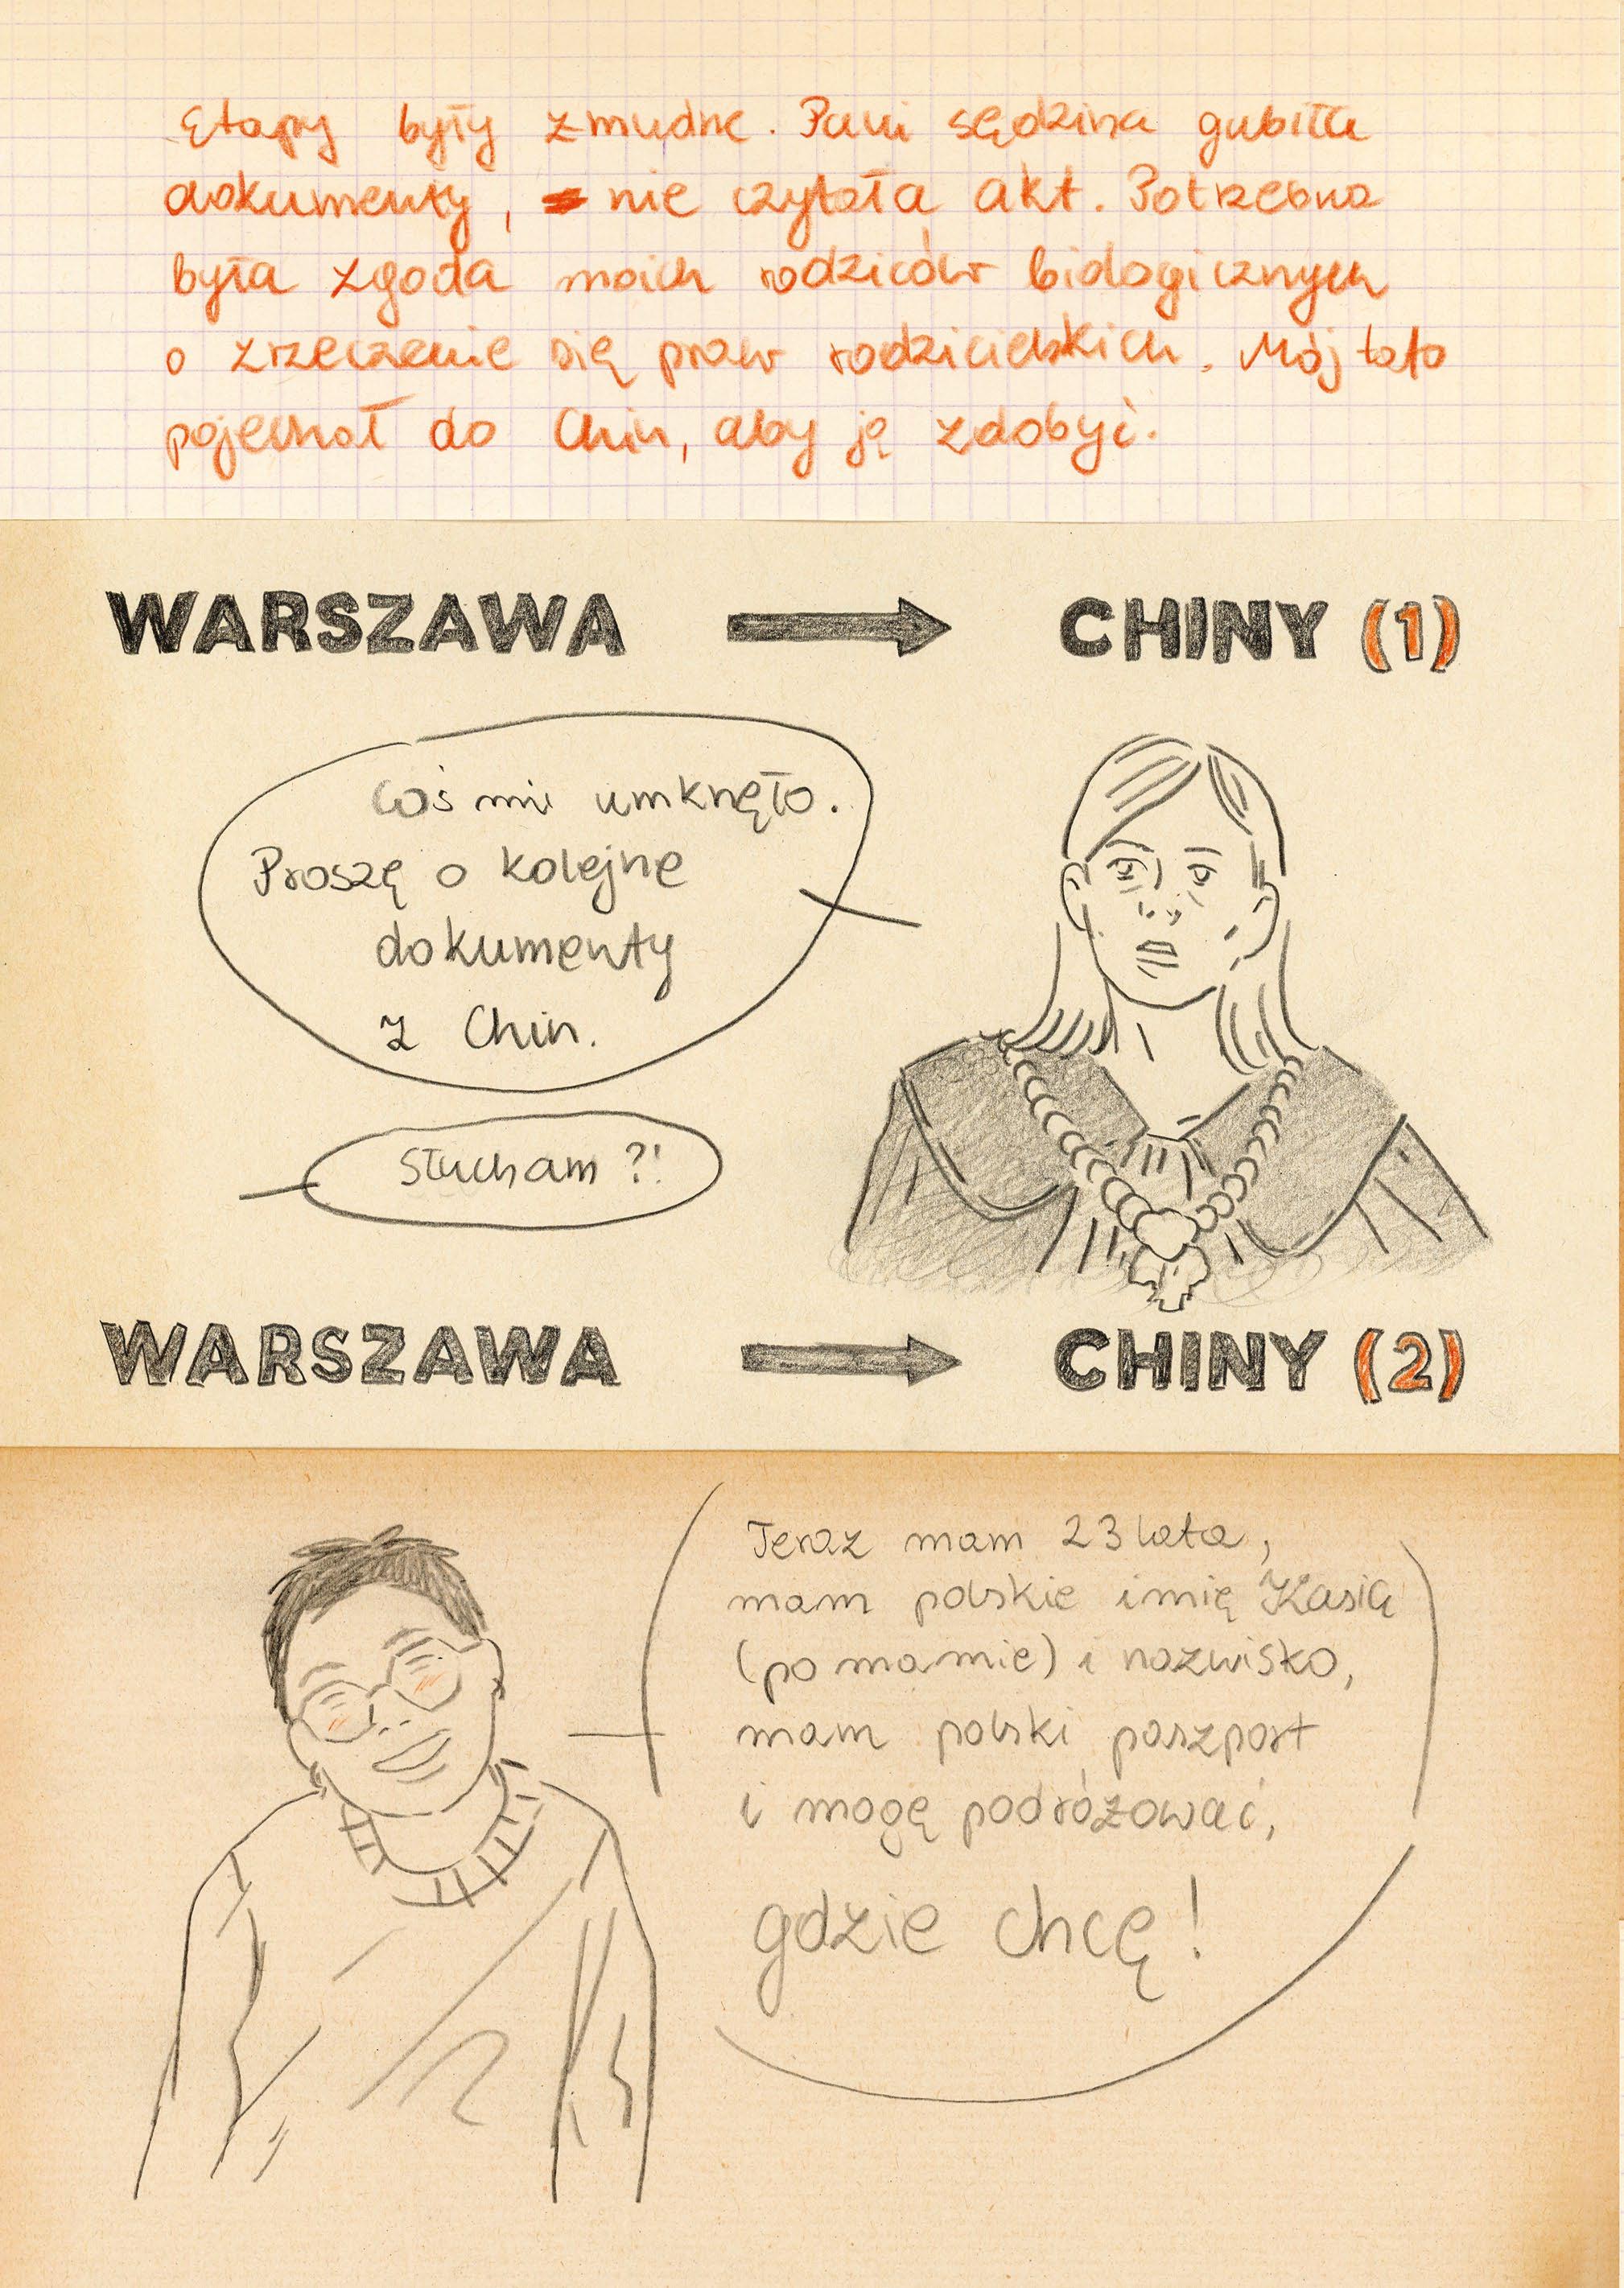 Etapy były zmudne. Pani sędzina gubiła
dokumenty, nie czytała akt. Potrzebna
była zgoda moich rodziców biologicznych
o zrzeczenie się praw rodzicielskich. Mój tato
pojechał do Chin, aby ją zdobyć.
WARSZAWA → CHINY (1)
Coś mi umknęło.
Proszę o kolejne
dokumenty
z Chin.
Słucham?!
WARSZAWA → CHINY (2)
Teraz mam 23 lata,
mam polskie imię Kasia
(po mamie) i nazwisko,
mam polski paszport
i mogę podróżować,
gdzie chcę!